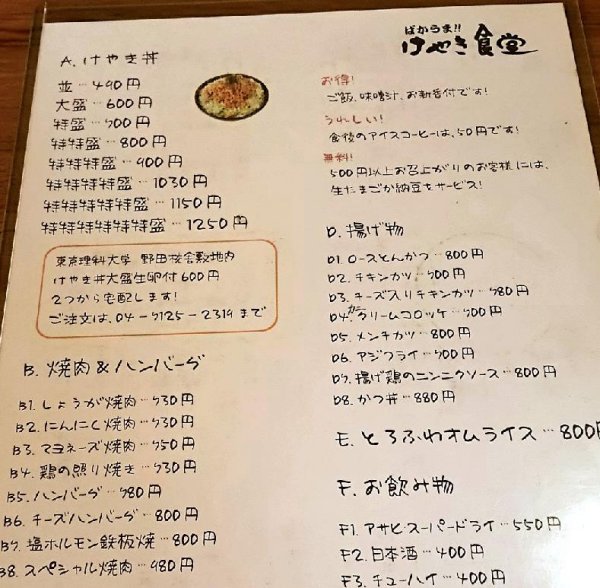 ばかうま!!
けやき食堂
A. けやき丼
並…490円
大盛…600円
特盛…700円
特特盛…800円
特特特盛…900円
特特特特盛…1030円
特特特特特盛…1150円
特特特特特特盛…1250円
東京理科大学 野田校舎敷地内
けやき丼大盛生卵付600円
2つから宅配します!
ご注文は、04-7125-2319まで
B. 焼肉&ハンバーグ
B1. しょうが焼肉…730円
B2. にんにく焼肉…730円
B3. マヨネーズ焼肉…750円
B4. 鶏の照り焼き…730円
B5. ハンバーグ…780円
B6. チーズハンバーグ…800円
B7. 塩ホルモン鉄板焼…800円
B8. スペシャル焼肉…980円
お得!
ご飯、味噌汁、お新香付です!
うれしい!
食後のアイスコーヒーは、50円です!
無料!
500円以上お召上がりのお客様には、
生たまごか納豆をサービス!
D. 揚げ物
D1. ロースとんかつ…800円
D2. チキンカツ…700円
D3. チーズ入りチキンカツ…780円
D4. カニクリームコロッケ…700円
D5. メンチカツ…700円
D6. アジフライ…700円
D7. 揚げ鶏のニンニクソース…800円
D8. かつ丼…880円
E. とろふわオムライス…800円
F. お飲み物
F1. アサヒスーパードライ…550円
F2. 日本酒…400円
F3. チューハイ…400円